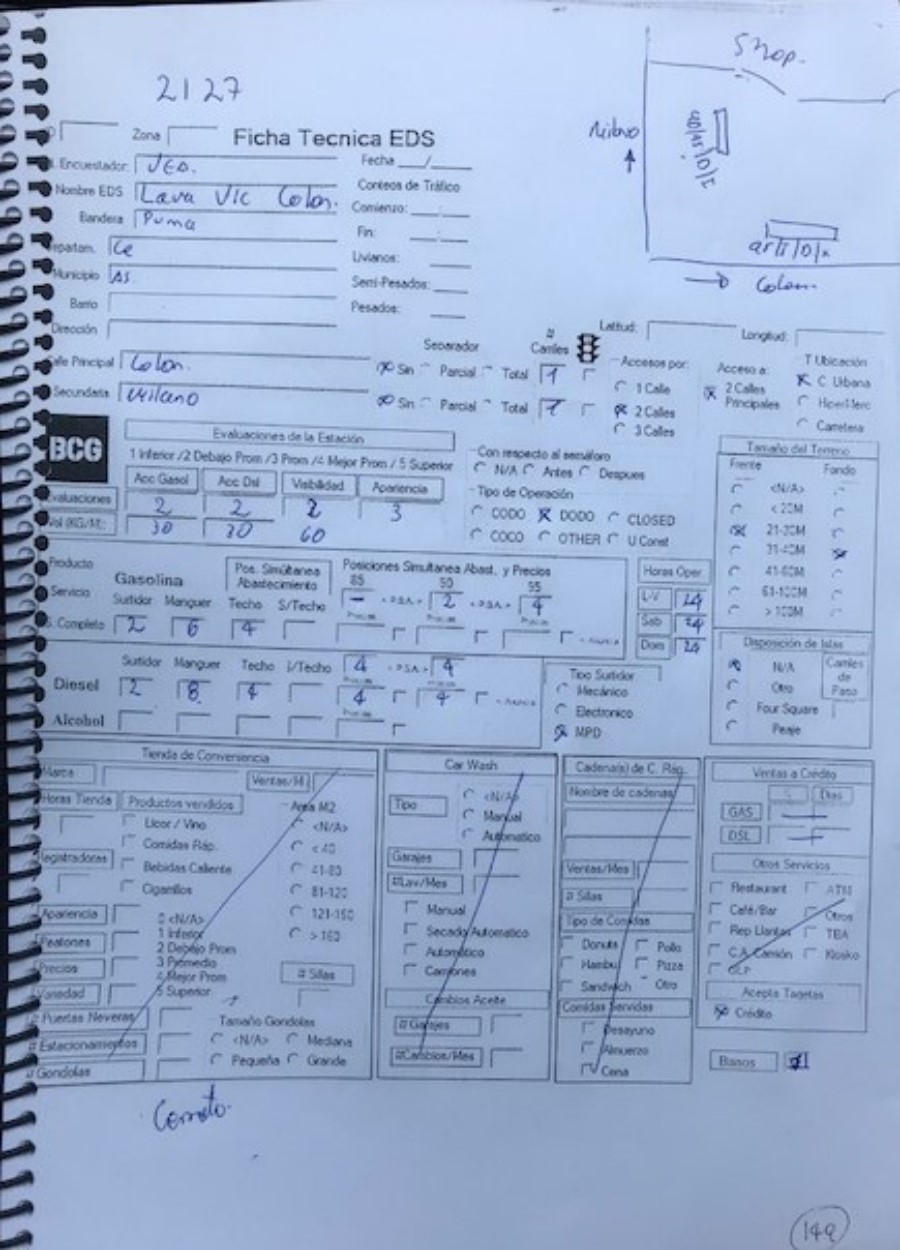 2127
Shop.
Milano
Colon
Zona
Ficha Tecnica EDS
Encuestador: JED.
Fecha ___/___
Nombre EDS Lava Vic Colon.
Conteos de Tráfico
Bandera Puma
Comienzo: ___:___
Fin: ___:___
Departam. Ce
Livianos: ___
Municipio AS
Semi-Pesados: ___
Barrio
Pesados: ___
Dirección
Latitud:
Longitud:
Separador
# Carriles
Accesos por:
Acceso a:
T Ubicación
Calle Principal Colon.
Sin Parcial Total 1
1 Calle
2 Calles Principales
C Urbana
Secundaria Milano
Sin Parcial Total 1
2 Calles
HiperMerc
3 Calles
Carretera
BCG
Evaluaciones de la Estación
1 Inferior /2 Debajo Prom /3 Prom /4 Mejor Prom / 5 Superior
Acc Gasol Acc Dsl Visibilidad Apariencia
Evaluaciones 2 2 2 3
Vol (KG/M): 30 30 60
Con respecto al semáforo
N/A Antes Despues
Tipo de Operación
CODO DODO CLOSED
COCO OTHER U Const
Tamaño del Terreno
Frente Fondo
<N/A>
< 20M
21-30M
31-40M
41-60M
61-100M
> 100M
Producto
Servicio
Gasolina
Pos. Simultanea Abastecimiento
Posiciones Simultanea Abast. y Precios
85 90 95
Surtidor Manguer Techo S/Techo
- 2 4
S. Completo 2 6 4
Horas Oper
L-V 24
Sab 24
Dom 24
Surtidor Manguer Techo S/Techo
4 4
Diesel 2 8 4
4 4
Alcohol
Tipo Surtidor
Mecánico
Electronico
MPD
Disposición de Islas
N/A
Otro
Four Square
Peaje
Carriles de Paso
Tienda de Conveniencia
Marca
Ventas/M
Horas Tienda
Productos vendidos
Area M2
Licor / Vino
<N/A>
Comidas Ráp.
< 40
Registradoras
Bebidas Caliente
41-80
Cigarrillos
81-120
Apariencia
0 <N/A>
121-160
1 Inferior
> 160
Peatones
2 Debajo Prom
3 Promedio
Precios
4 Mejor Prom
# Sillas
Variedad
5 Superior
# Puertas Neveras
Tamaño Gondolas
# Estacionamientos
<N/A> Mediana
# Gondolas
Pequeña Grande
Car Wash
Tipo
<N/A>
Manual
Automatico
Garajes
#Lav/Mes
Manual
Secado Automatico
Automático
Camiones
Cambios Aceite
# Garajes
#Cambios/Mes
Cadena(s) de C. Ráp.
Nombre de cadenas
Ventas/Mes
# Sillas
Tipo de Comidas
Donuts Pollo
Hambu Pizza
Sandwich Otro
Comidas Servidas
Desayuno
Almuerzo
Cena
Ventas a Crédito
Dias
GAS
DSL
Otros Servicios
Restaurant ATM
Café/Bar Otros
Rep Llantas TBA
C.A. Camión Kiosko
GLP
Acepta Tarjetas
Crédito
Banos
149